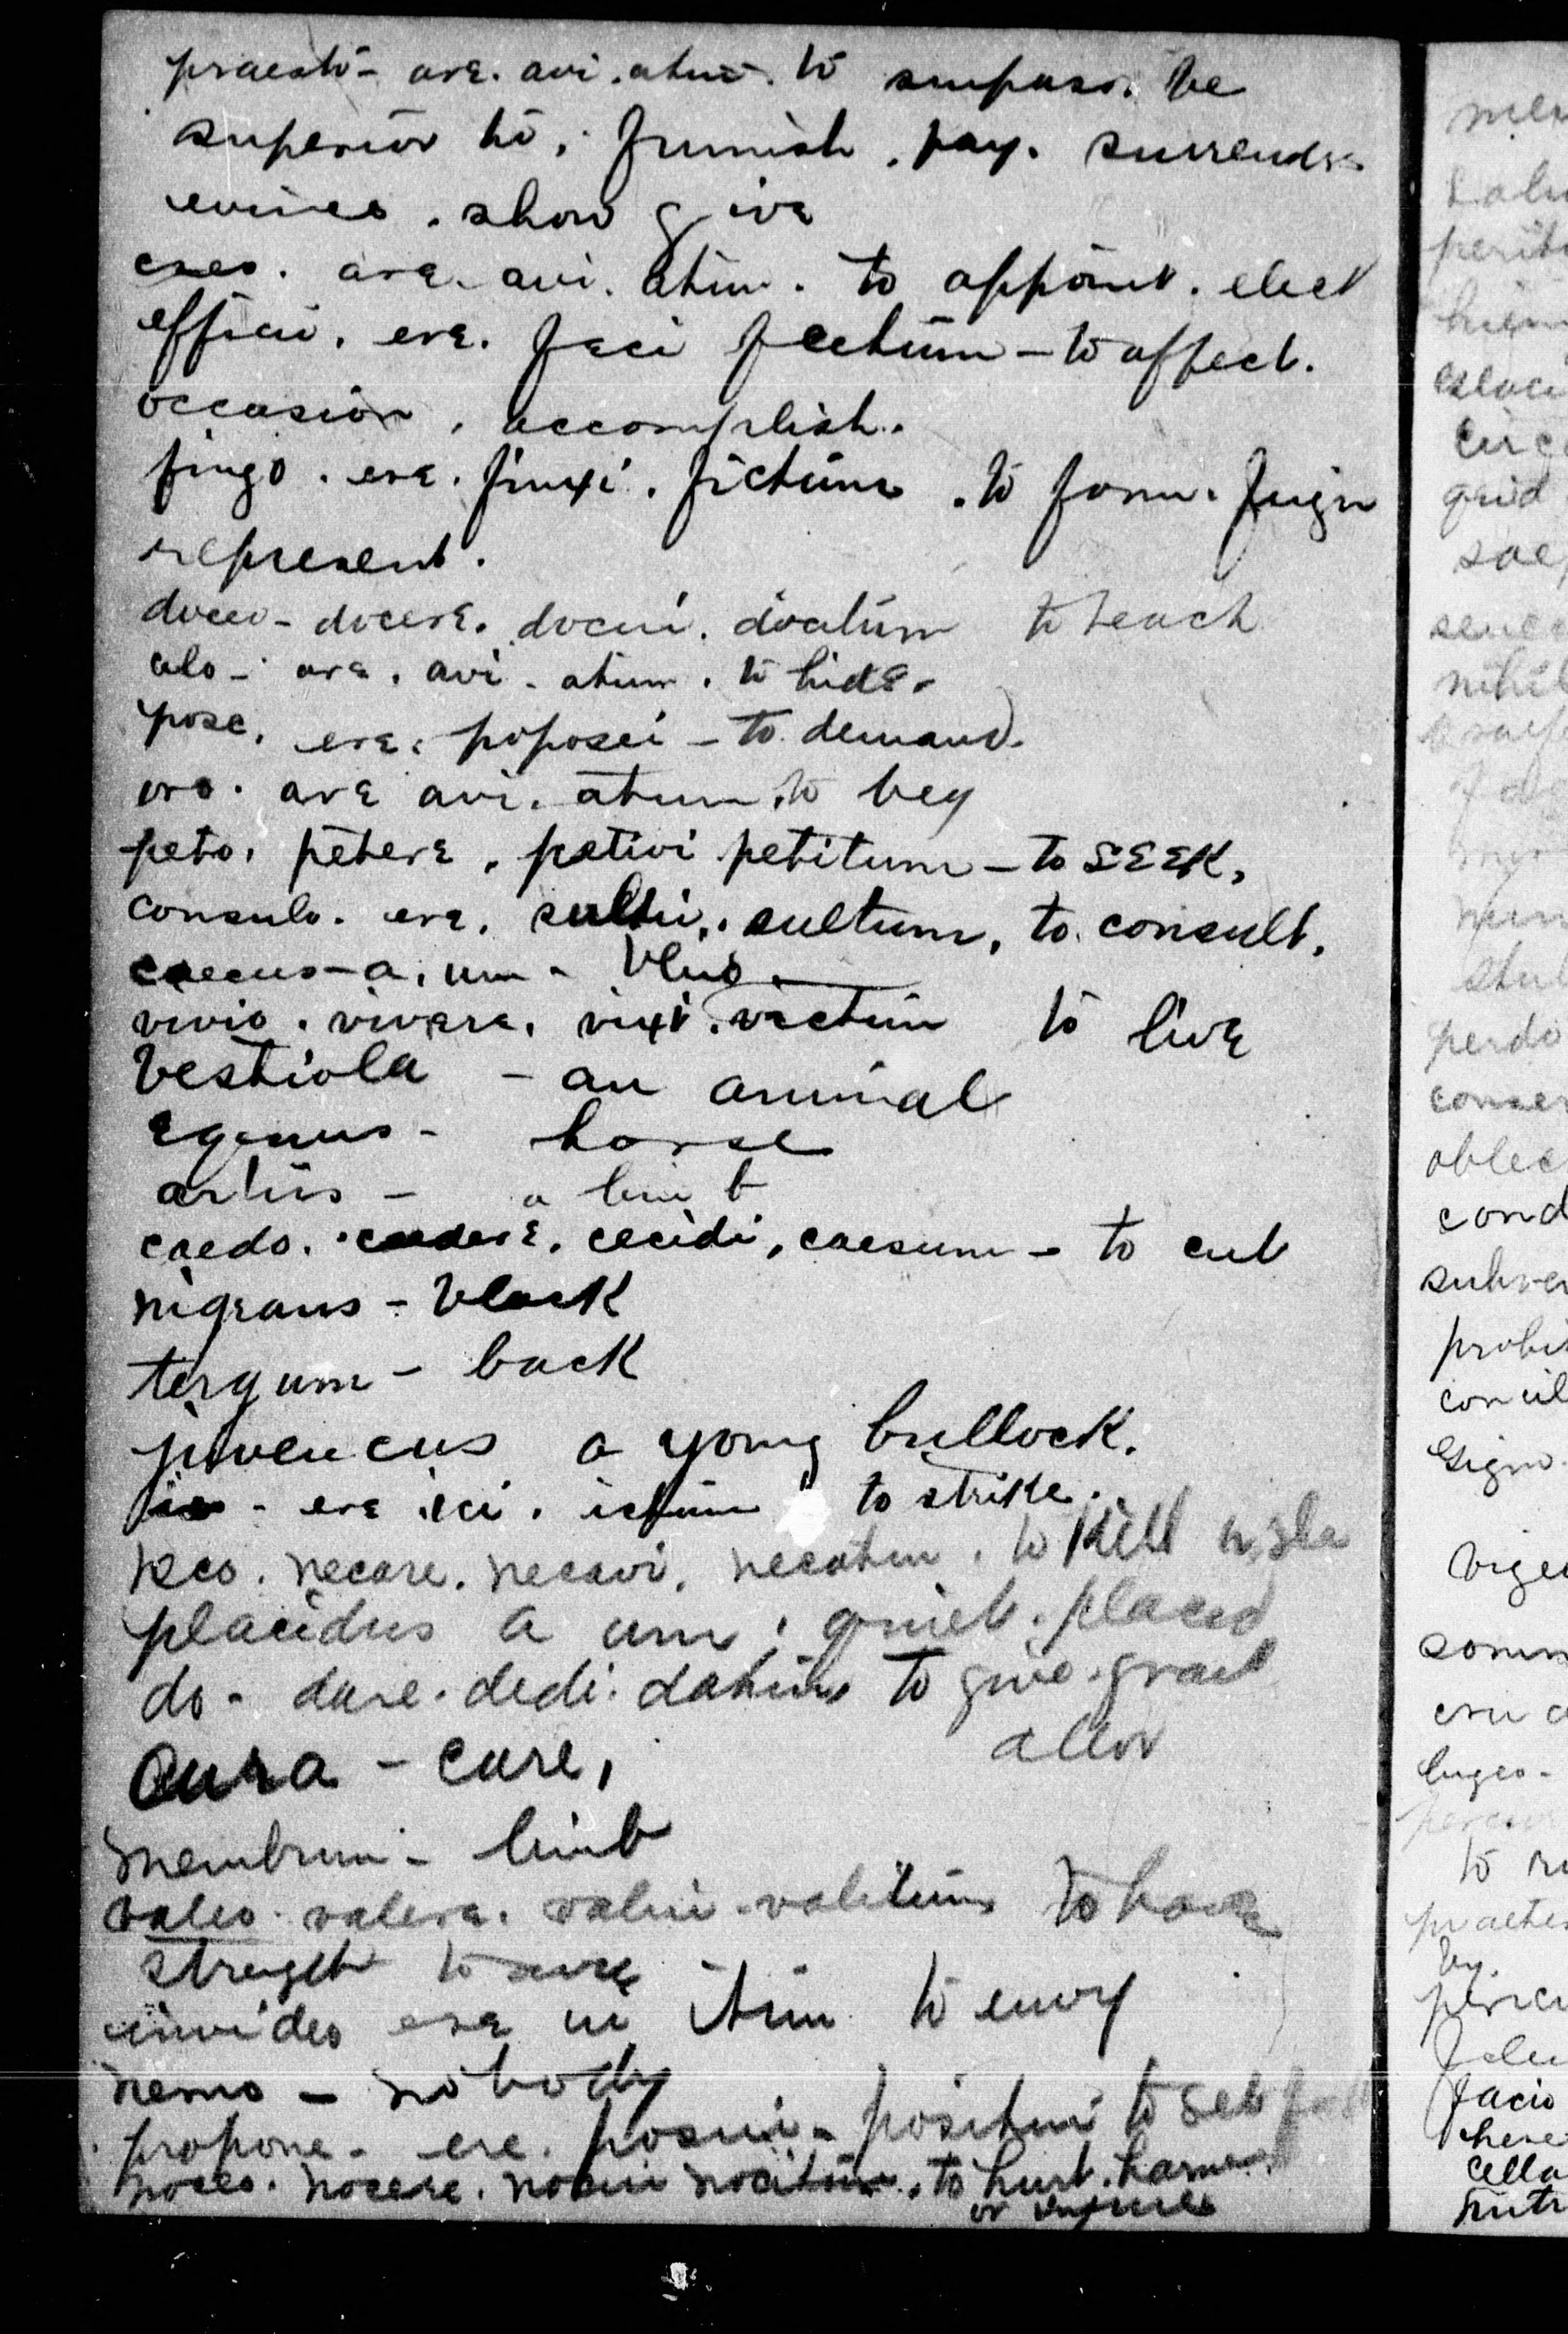 praesto - are. avi. atum. to surpass. be
superior to, furnish. pay. surrender
evince. show give
creo. are. avi. atum. to appoint. elect
efficio. ere. feci fectum - to affect.
occasion, accomplish.
fingo. ere. finxi. fictum. to form. feign
represent.
doceo - docere. docui. doctum to teach
celo - are. avi. atum. to hide.
posc. ere. poposci - to demand.
oro. are avi. atum. to beg
peto. petere, petivi petitum - to SEEK.
consulo. ere. sului, sultum, to consult.
caecus - a. um -
vivio. vivere. vixi. victum to live
bestiola - an animal
equus - horse
artus - a limb
caedo. caedere. cecidi, caesum - to cut
nigrans - black
tergum - back
juvencus a young bullock.
ico - ere. ici. ictum to strike.
neco. necare. necavi. necatum. to kill
placidus a um, quiet. placid
do - dare. dedi. datum to give. grant
allow
Cura - care,
membrum - limb
valeo. valere. valui - valitum to have
strength to
invideo ere ui itum to envy
nemo - nobody
propone - ere. posui - positum to set
noceo. nocere. nocui nocitum. to hurt. harm.
or injure
mer
perit
circ
quid
saep
senec
nihil
stul
perdo
conser
oblec
cond
subve
probi
concil
Gigno
vige
somn
lugeo -
to
by.
facio
here
cella
nutr